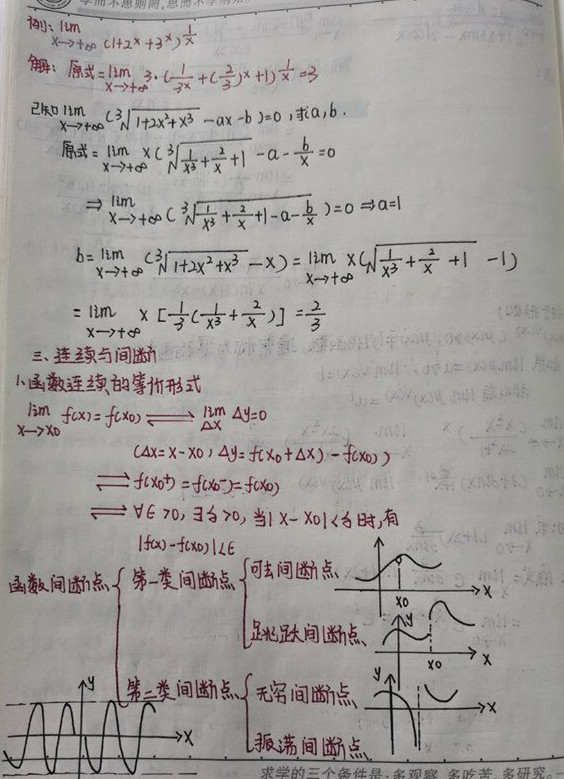 学而不思则罔,思而不学则殆。
例: lim x→+∞ (1+2^x+3^x)^(1/x)
解: 原式=lim x→+∞ 3·(1/3^x+(2/3)^x+1)^(1/x)=3
已知 lim x→+∞ (∛(1+2x²+x³) -ax-b)=0, 求a,b.
原式=lim x→+∞ x(∛(1/x³+2/x+1) -a-b/x=0
⇒ lim x→+∞ (∛(1/x³+2/x+1-a-b/x))=0 ⇒a=1
b=lim x→+∞ (∛(1+2x²+x³)-x)=lim x→+∞ x(√(1/x³+2/x+1) -1)
=lim x→+∞ x[1/3(1/x³+2/x)]=2/3
三、连续与间断
1、函数连续的等价形式
lim x→x0 f(x)=f(x0) ⇌ lim Δx Δy=0
(Δx=x-x0, Δy=f(x0+Δx)-f(x0))
⇌ f(x0+)=f(x0-)=f(x0)
⇌ ∀ε>0, ∃δ>0, 当|x-x0|<δ时,有
|f(x)-f(x0)|<ε
函数间断点 { 第一类间断点 { 可去间断点
x0 x
跳跃间断点
y x0 x
第二类间断点 { 无穷间断点
y x
振荡间断点
y x
求学的三个条件是:多观察、多吃苦、多研究。